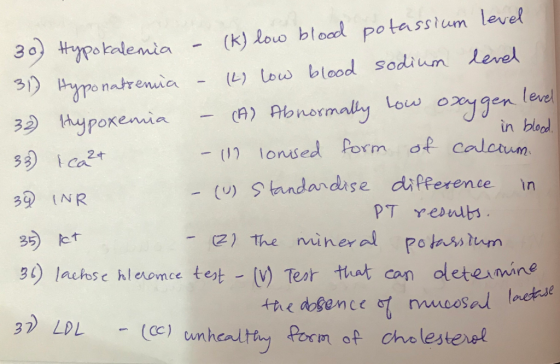 30) Hypokalemia - (K) low blood potassium level
31) Hyponatremia - (L) low blood sodium level
32) Hypoxemia - (A) Abnormally low oxygen level
in blood
33) Ica2+ - (I) Ionised form of calcium.
34) INR - (U) Standardise difference in
PT results.
35) K+ - (Z) The mineral potassium
36) lactose tlerance test - (V) Test that can determine
the absence of mucosal lactase
37) LDL - (CC) unhealthy form of cholesterol